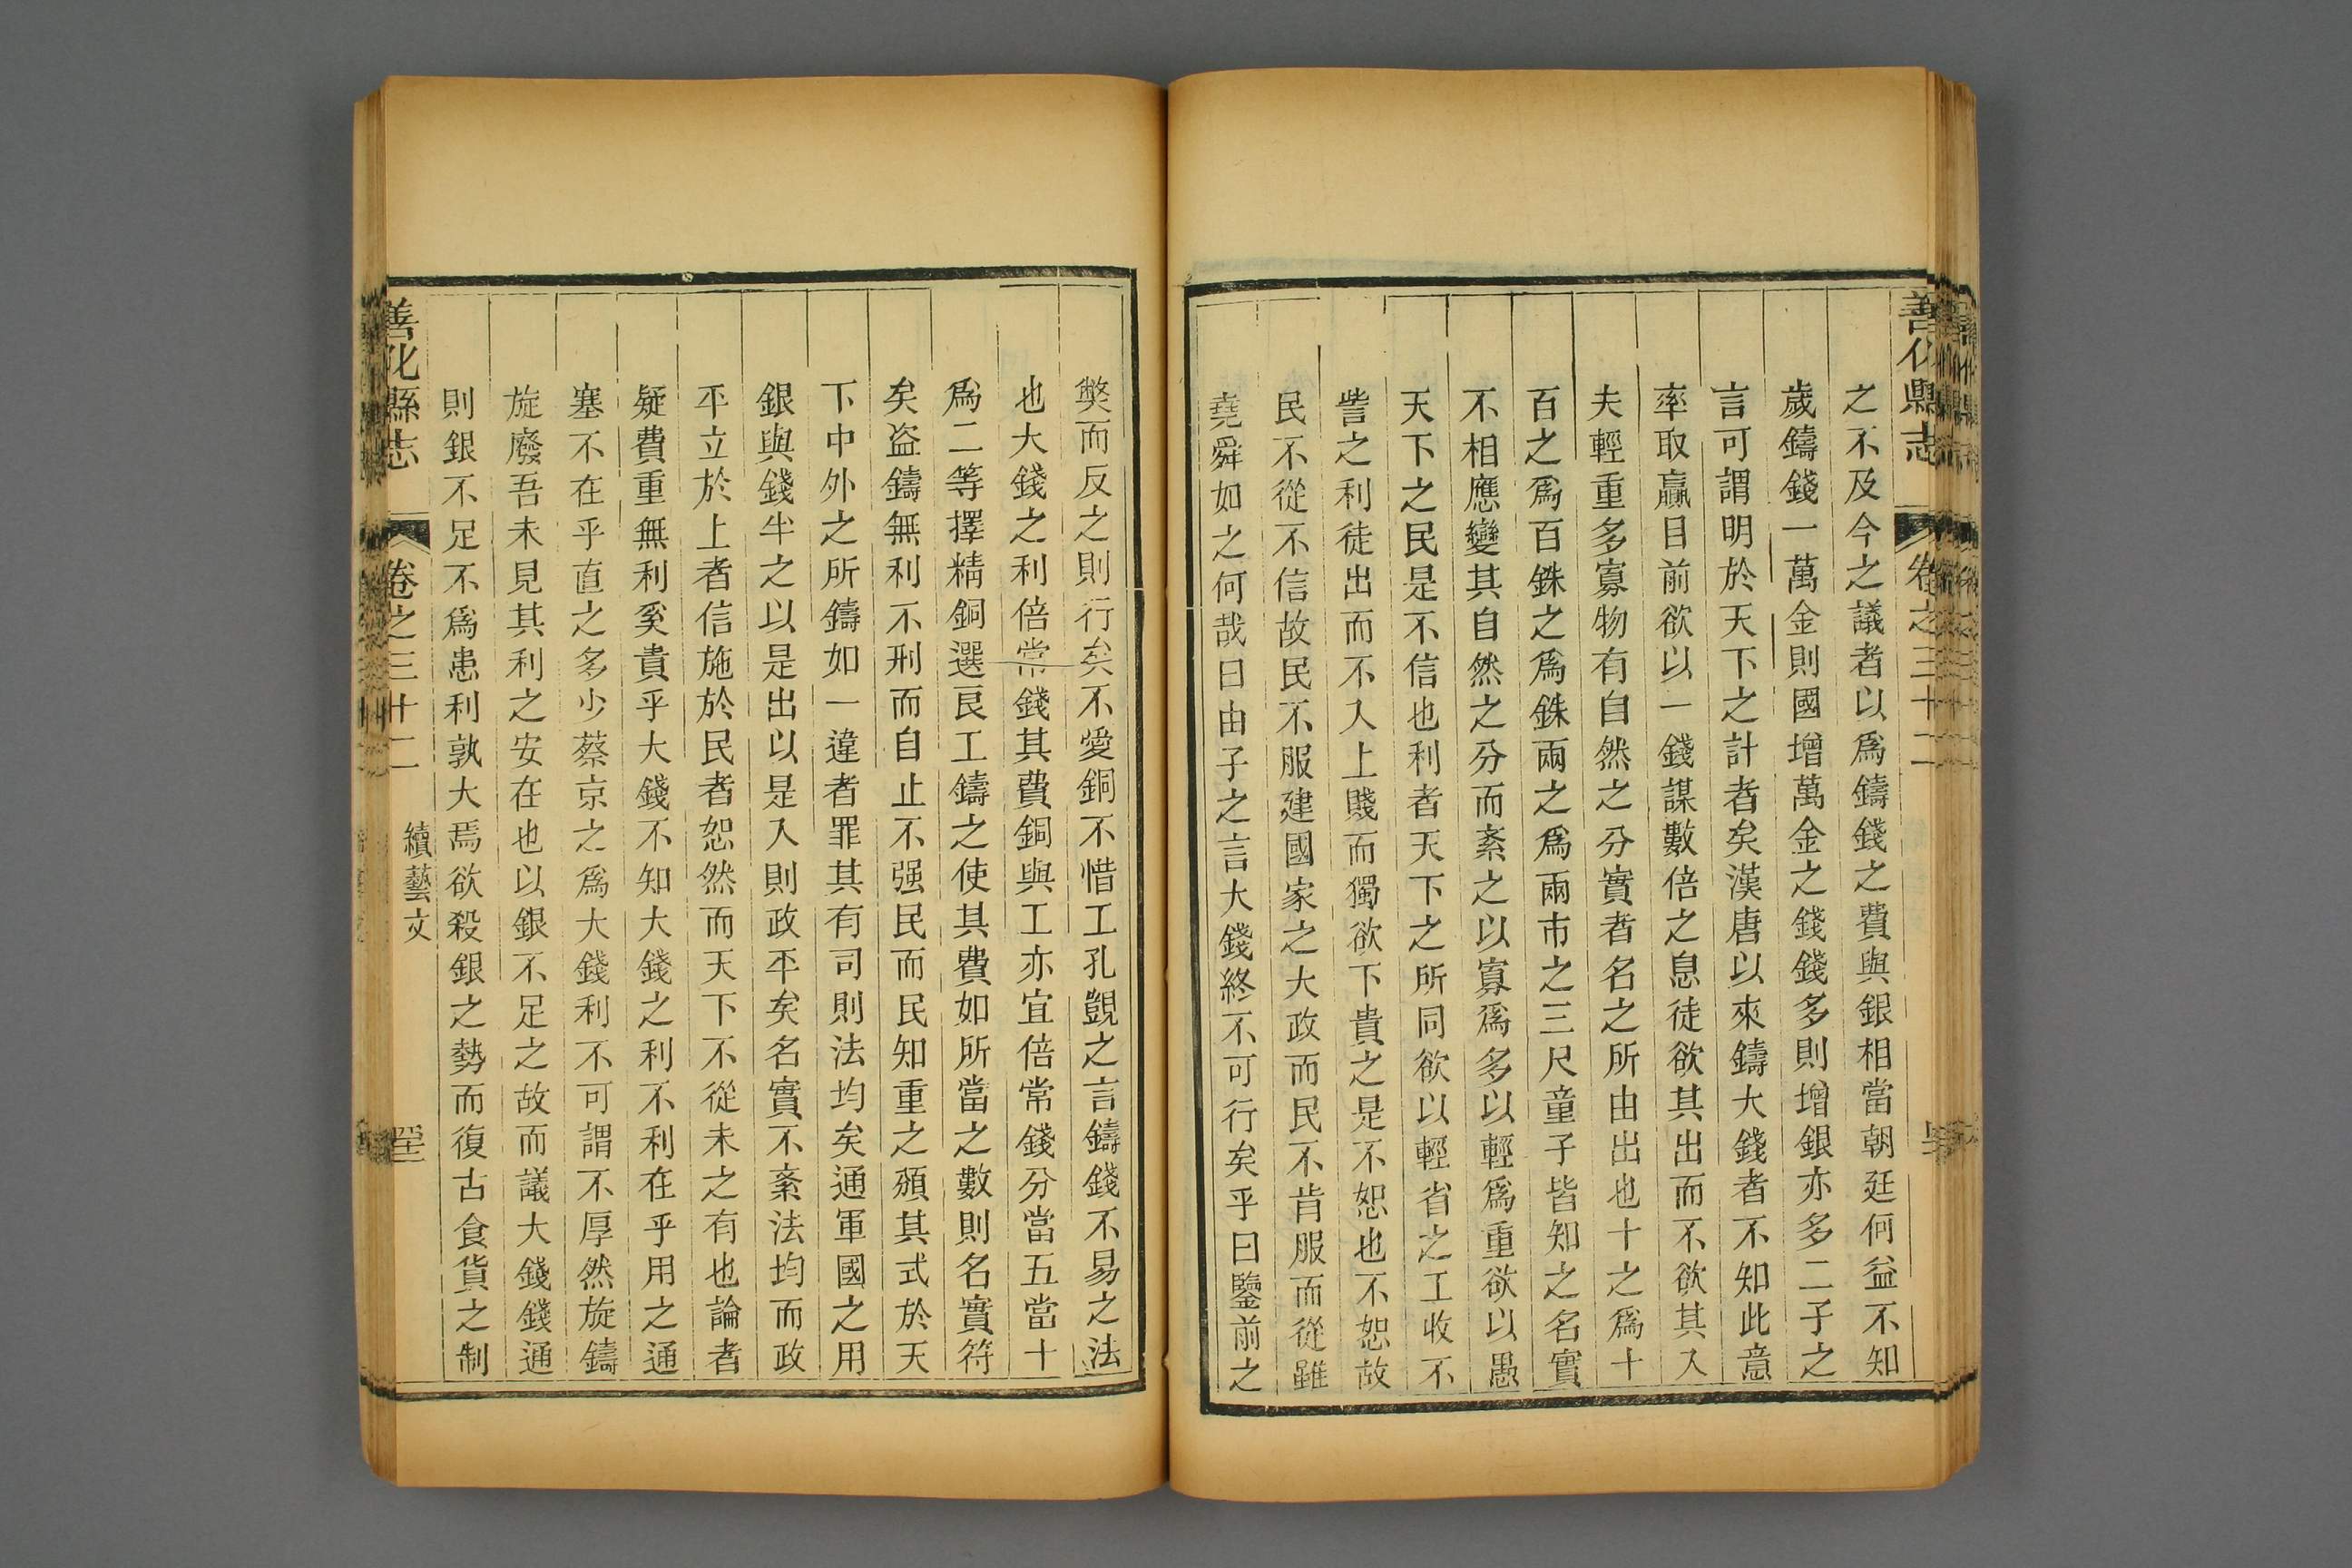 善化縣志
卷之三十二
之不及今之議者以爲鑄錢之費與銀相當朝廷何益不知
歲鑄錢一萬金則國增萬金之錢錢多則增銀亦多二子之
言可謂明於天下之計者矣漢唐以來鑄大錢者不知此意
率取贏目前欲以一錢謀數倍之息徒欲其出而不欲其入
夫輕重多寡物有自然之分實者名之所由出也十之爲十
百之爲百銖之爲銖兩之爲兩市之三尺童子皆知之名實
不相應變其自然之分而紊之以寡爲多以輕爲重欲以愚
天下之民是不信也利者天下之所同欲以輕省之工收不
訾之利徒出而不入上賤而獨欲下貴之是不恕也不恕故
民不從不信故民不服建國家之大政而民不肯服而從雖
堯舜如之何哉曰由子之言大錢終不可行矣乎曰鑒前之
獘而反之則行矣不愛銅不惜工孔覬之言鑄錢不易之法
也大錢之利倍常錢其費銅與工亦宜倍常錢分當五當十
爲二等擇精銅選良工鑄之使其費如所當之數則名實符
矣盜鑄無利不刑而自止不强民而民知重之頒其式於天
下中外之所鑄如一違者罪其有司則法均矣通軍國之用
銀與錢半之以是出以是入則政平矣名實不紊法均而政
平立於上者信施於民者恕然而天下不從未之有也論者
疑費重無利奚貴乎大錢不知大錢之利不利在乎用之通
塞不在乎直之多少蔡京之爲大錢利不可謂不厚然旋鑄
旋廢吾未見其利之安在也以銀不足之故而議大錢錢通
則銀不足不爲患利孰大焉欲殺銀之勢而復古食貨之制
善化縣志
卷之三十二
續藝文